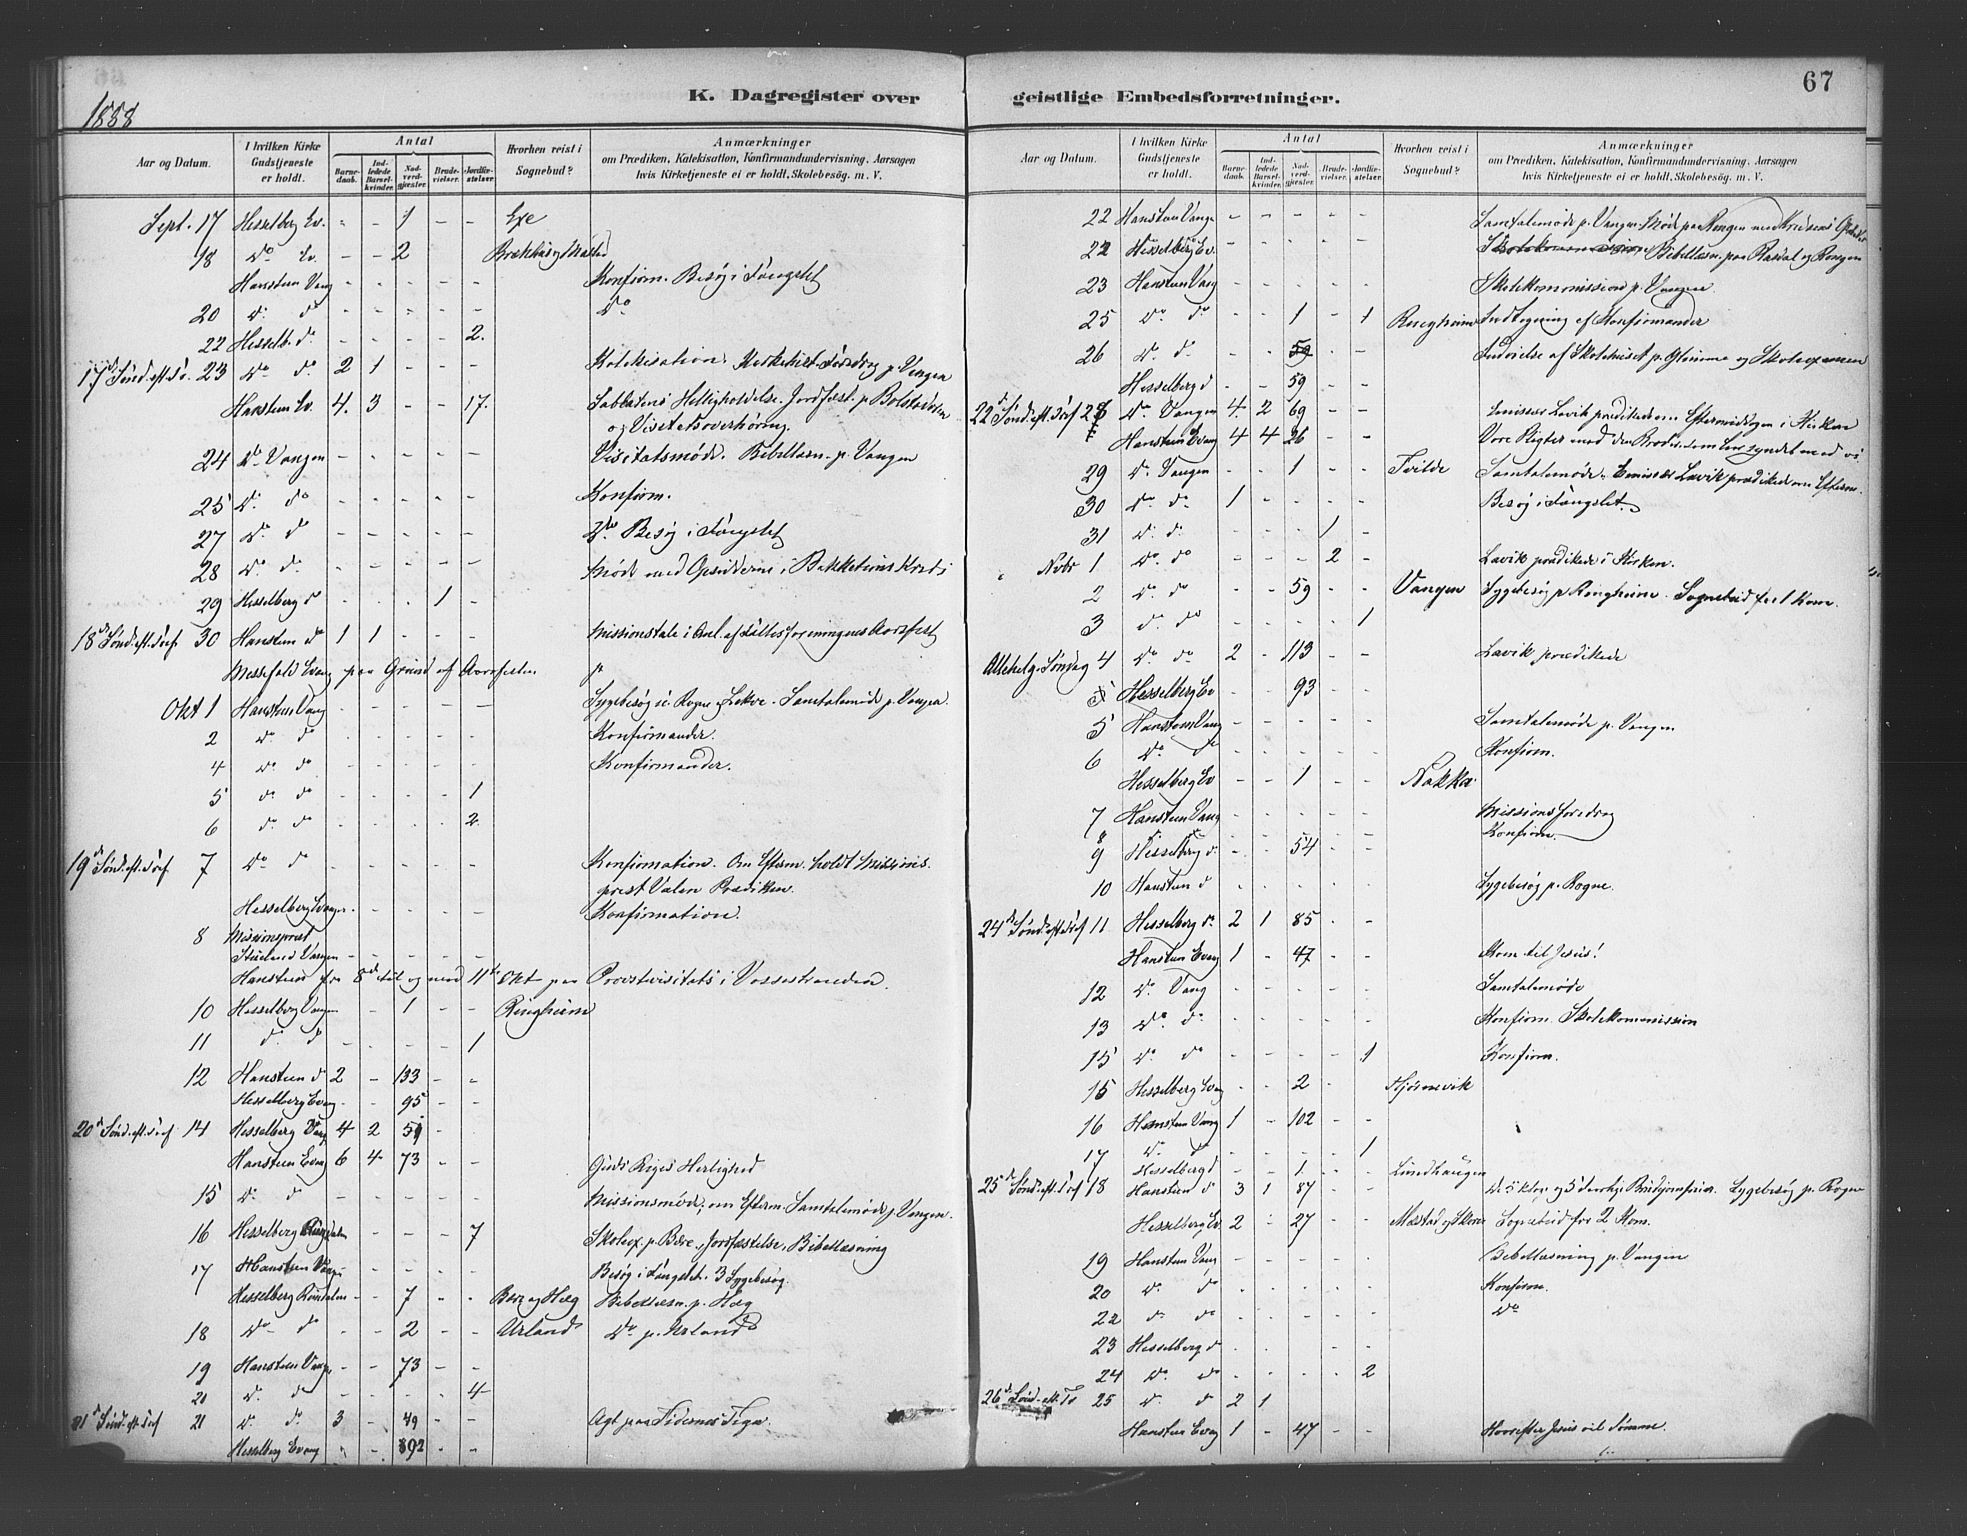 1888
K. Dagregister over
Aar og Datum.
I hvilken Kirke Gudstjeneste er holdt.
Antal
Barnedaab.
Indledede Barselkvinder.
Nadverdgjester.
Brudevielser.
Jordfæstelser.
Hvorhen reist i Sognebud?
Anmærkninger
om Prædiken, Katekisation, Konfirmandundervisning, Aarsagen
hvis Kirketjeneste ei er holdt, Skolebesøg. m. V.
Sept. 17 Hesselberg Ev. - - 1 - - Exe
18 do Ev. - - 2
Hansteen Vang - - - - - Konfirm. Besøg i Fængslet
20 do do - - - - - do
22 Hesselb. do - - - - 2.
17d Sønd. eft. 23 do do 2 1 - - - Katekisation. Kirkehist. Foredrag p. Vangen
Hansteen Ev. 4. 3 - - 17. Sabbatens Helligholdelse. Jordfæst. p. Bolstadøren
og Visitatsoverhøring.
24 do Vangen - - - - - Visitatsmøde. Bibellæsn. p. Vangen
25 do do - - - - - Konfirm.
27 do do - - - - - do Besøg i Fængslet
28 do do - - - - - Møde med Opsidderne i Kreds
29 Hesselberg d - - - 1 -
18d Sønd. eft. Tref. 30 Hansteen do 1 1 - - - Missionstale i Anl. af Fællesforeningens Aarsfest
Messefald Evang paa Grund af Aarsfesten
Okt 1 Hansteen Vang - - - - - Sygebesøg i Rogne og Lekve. Samtalemøde p. Vangen.
2 do do - - - - - Konfirmander.
4 do do - - - - - Konfirmander.
5 do do - - - - 1
6 do do - - - - 2
19d Sønd. eft. Tref 7 do do - - - - - Konfirmation. Om Efterm. holdt Missions-
prest Valen Prædiken.
Hesselberg Evanger - - - - - Konfirmation.
8 Missionsprest
Vangen - - - - -
Hansteen fra 8de til og med 11te Okt paa Provstevisitats i Vossestranden.
10 Hesselberg Vangen - 1 - - Ringheim
11 do do - - - - 1
12 Hansteen d 2 - 133 - -
Hesselberg Evang - - 95 - -
20d Sønd. eft. Tref 14 Hesselberg Vang 4 2 59 -
Hansteen Evang 6 4 73 - - Guds Riges Herlighed
15 do d - - - - - Missionsmøde; om Efterm. Samtalemøde p. Vangen.
16 Hesselberg - - - - 7 Skoleex. p. Bære, Jordfæstelse, Bibellæsning
17 Hansteen Vang - - - - - Besøg i Fængslet. 3 Sygebesøg.
Hesselberg - - 7 - - Bere og Hæg Bibellæsn. p. Hæg
18 do do - - 2 - - Urland do p. Urland
19 Hansteen Vang - - 73 - -
20 do do - - - - 4
21d Sønd. eft. Tref 21 do do 3 - 49 - - Agt paa Tidernes Tegn.
Hesselberg Evang - - 92 - -
67
geistlige Embedsforretninger.
Aar og Datum.
I hvilken Kirke Gudstjeneste er holdt.
Antal
Barnedaab.
Indledede Barselkvinder.
Nadverdgjester.
Brudevielser.
Jordfæstelser.
Hvorhen reist i Sognebud?
Anmærkninger
om Prædiken, Katekisation, Konfirmandundervisning, Aarsagen
hvis Kirketjeneste ei er holdt, Skolebesøg. m. V.
22 Hansteen Vang - - - - - Samtalemøde p. Vangen. Møde paa Rongen med Kredsens
22 Hesselberg Ev. - - - - - Skolekommission Bibellæsn. paa Rasdal og Rongen
23 Hansteen Vang - - - - - Skolekommission p. Vangen.
25 do do - - 1 - 1 Ringheim Indtegning af Konfirmander
26 do do - - 59 - - Indvielse af Skolehuset p. Glimme og Skoleexamen
Hesselberg d - - 59 - -
22d Sønd. eft. Tref 28 do Vangen 4. 2 69 - - Emissær Lavik prædikede om Eftermiddagen i Kirken
Hansteen Evang 4 4 26 - - Vore Pligter mod den Broder som har syndet mod os
29 do Vangen - - 1 - - Tvilde Samtalemøde. Emissær Lavik prædikede om Efterm.
30 do do 1 - - - - Besøg i Fængslet.
31 do do - - - 1 -
Novbr 1 do do - - - 2 - Lavik prædikede i Kirken.
2 do do - - 59 - - Vangen Sygebesøg p. Ringheim. Sognebud for 1 Kom.
3 do do - - - - 1
Allehelg. Søndag 4 do do 2 - 113 - - Lavik prædikede
Hesselberg Ev - - 93 - -
5 Hansteen Vang - - - - - Samtalemøde p. Vangen
6 do d - - - - - Konfirm.
Hesselberg Ev - - 1 - - Nokka
7 Hansteen Vang - - - - - Missionsforedrag
8 Konfirm.
9 Hesselberg d. - - 54 - -
10 Hansteen d - - - - - Sygebesøg p. Rogne.
24d Sønd. eft. Tref 11 Hesselberg do 2 1 85 - -
Hansteen Evang 1 - 47 - - Kom til Jesus!
12 do Vang - - - - - Samtalemøde
13 do do - - - - - Konfirm. Skolekommission
15 do do - - - - 1 Konfirm.
15 Hesselberg Evang - - 2 - -
16 Hansteen Vang 1 - 102 - -
17 do - - - - 1
Hesselberg d - - 1 - - Lundhaugen
25d Sønd. eft. Tref 18 Hansteen d 3 1 87 - - Sygebesøg p. Rogne
Hesselberg Ev. 2 - 27 - - Sognebud for 2 Kom.
19 Hansteen Vang - - - - - Bibellæsning p. Vangen
20 do d - - - - - Konfirm.
22 do do - - - - - do
23 Hesselberg d - - - - -
24 do do - - - - 2
26d Sønd. eft. Tr 25 do d 2 1
Hansteen Evang 1 - 47 - - Hvorefter Jesus vil dømme.